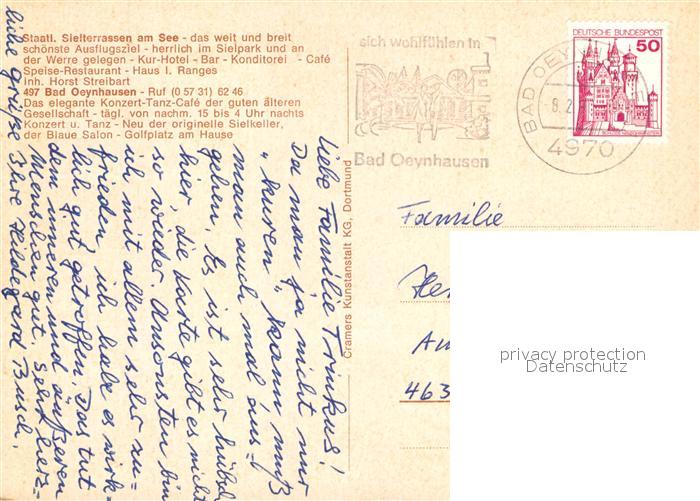 Staatl. Sielterrassen am See - das weit und breit
schönste Ausflugsziel - herrlich im Sielpark und an
der Werre gelegen - Kur-Hotel - Bar - Konditorei - Café
Speise-Restaurant - Haus I. Ranges
Inh. Horst Streibart
497 Bad Oeynhausen - Ruf (0 57 31) 62 46
Das elegante Konzert-Tanz-Café der guten älteren
Gesellschaft - tägl. von nachm. 15 bis 4 Uhr nachts
Konzert u. Tanz - Neu der originelle Sielkeller,
der Blaue Salon - Golfplatz am Hause
Liebe Familie Trinkus!
Da man ja nicht nur
"kuren" kann muß
man auch mal aus-
gehen. Es ist sehr hübsch
hier, die Karte gibt es nicht
so wieder. Ansonsten bin
ich mit allem sehr zu-
frieden, ich habe es wirk-
lich gut getroffen. Das tut
dem inneren und äußeren
Menschen gut. Sehr herz-
liche Grüße Ihre Hildegard Busch.
Cramers Kunstanstalt KG, Dortmund
sich wohlfühlen in
Bad Oeynhausen
BAD OEY
4970
DEUTSCHE BUNDESPOST
50
Familie
463
privacy protection
Datenschutz